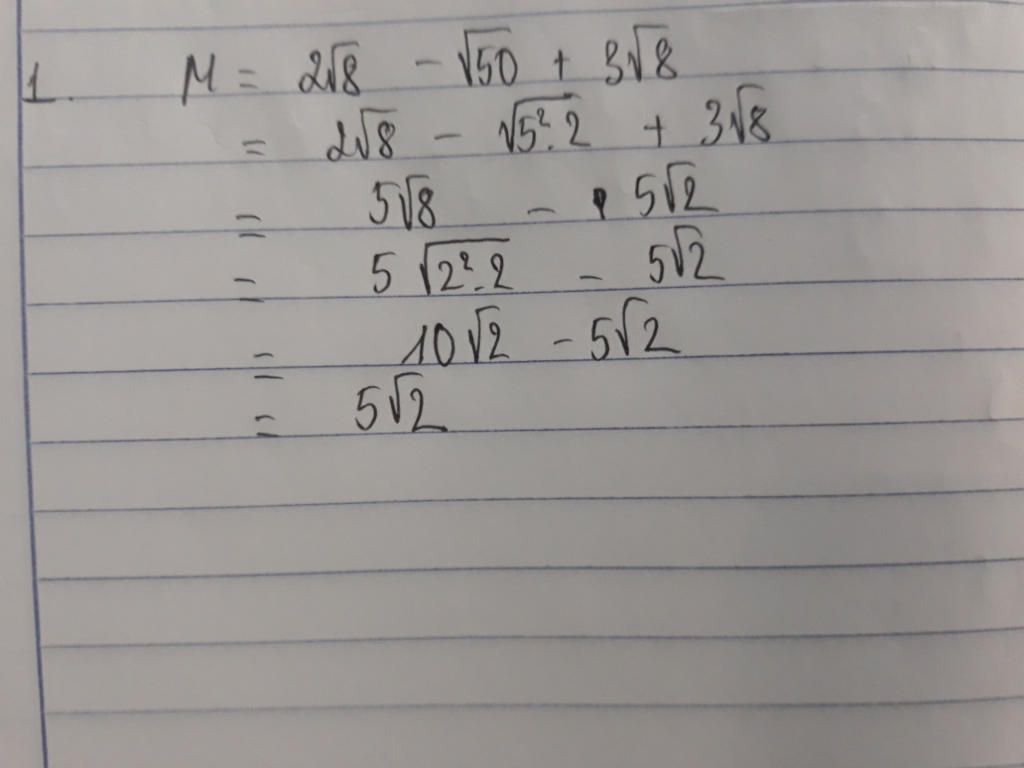 1. M = 2√8 - √50 + 3√8
= 2√8 - √5².2 + 3√8
= 5√8 - 5√2
= 5√2².2 - 5√2
= 10√2 - 5√2
= 5√2